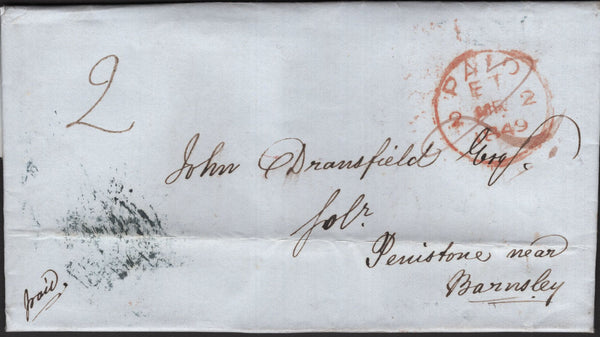 2
PAID
ET
2 MR 2
1849
John Dransfield Esqr.
Solr.
Penistone near
Barnsley
paid.